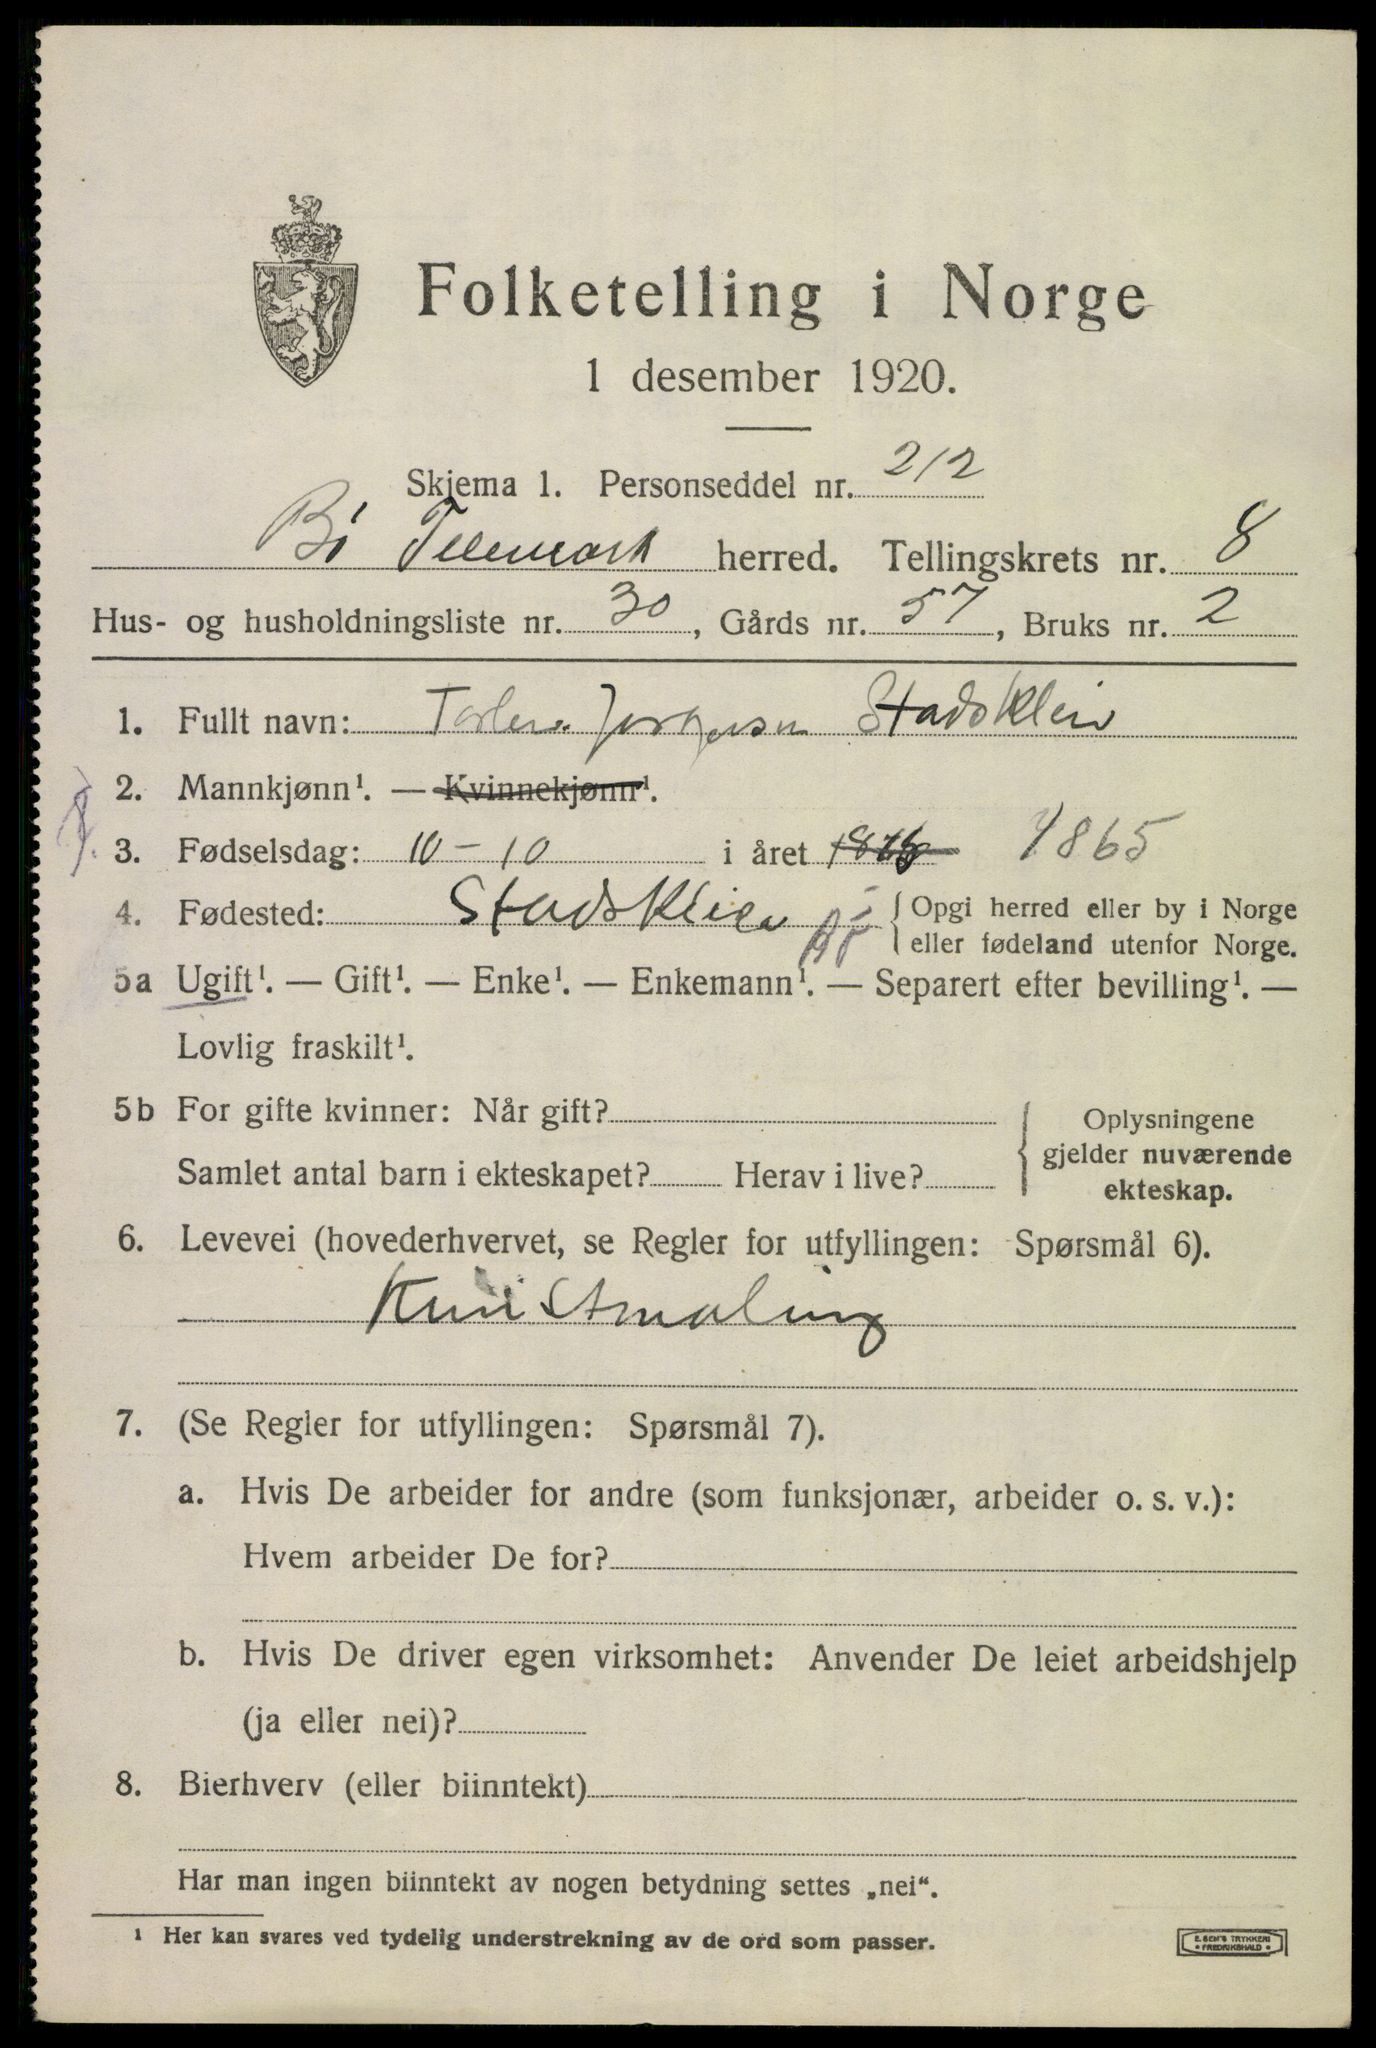 Folketelling i Norge
1 desember 1920.
Skjema 1. Personseddel nr. 212
Bö Telemark herred. Tellingskrets nr. 8
Hus- og husholdningsliste nr. 30, Gårds nr. 57, Bruks nr. 2
1. Fullt navn: Jorgensen Stadskleiv
2. Mannkjønn¹. — Kvinnekjønn¹.
3. Fødselsdag: 10 - 10 i året 1865
4. Fødested: Stadskleiv Bö { Opgi herred eller by i Norge
eller fødeland utenfor Norge.
5a Ugift¹. — Gift¹. — Enke¹. — Enkemann¹. — Separert efter bevilling¹. —
Lovlig fraskilt¹.
5b For gifte kvinner: Når gift?
Samlet antal barn i ekteskapet? Herav i live?
Oplysningene
gjelder nuværende
ekteskap.
6. Levevei (hovederhvervet, se Regler for utfyllingen: Spørsmål 6).
Kunstmaling
7. (Se Regler for utfyllingen: Spørsmål 7).
a. Hvis De arbeider for andre (som funksjonær, arbeider o. s. v.):
Hvem arbeider De for?
b. Hvis De driver egen virksomhet: Anvender De leiet arbeidshjelp
(ja eller nei)?
8. Bierhverv (eller biinntekt)
Har man ingen biinntekt av nogen betydning settes „nei“.
¹ Her kan svares ved tydelig understrekning av de ord som passer.
E. SEM'S TRYKKERI
* FREDRIKSHALD *